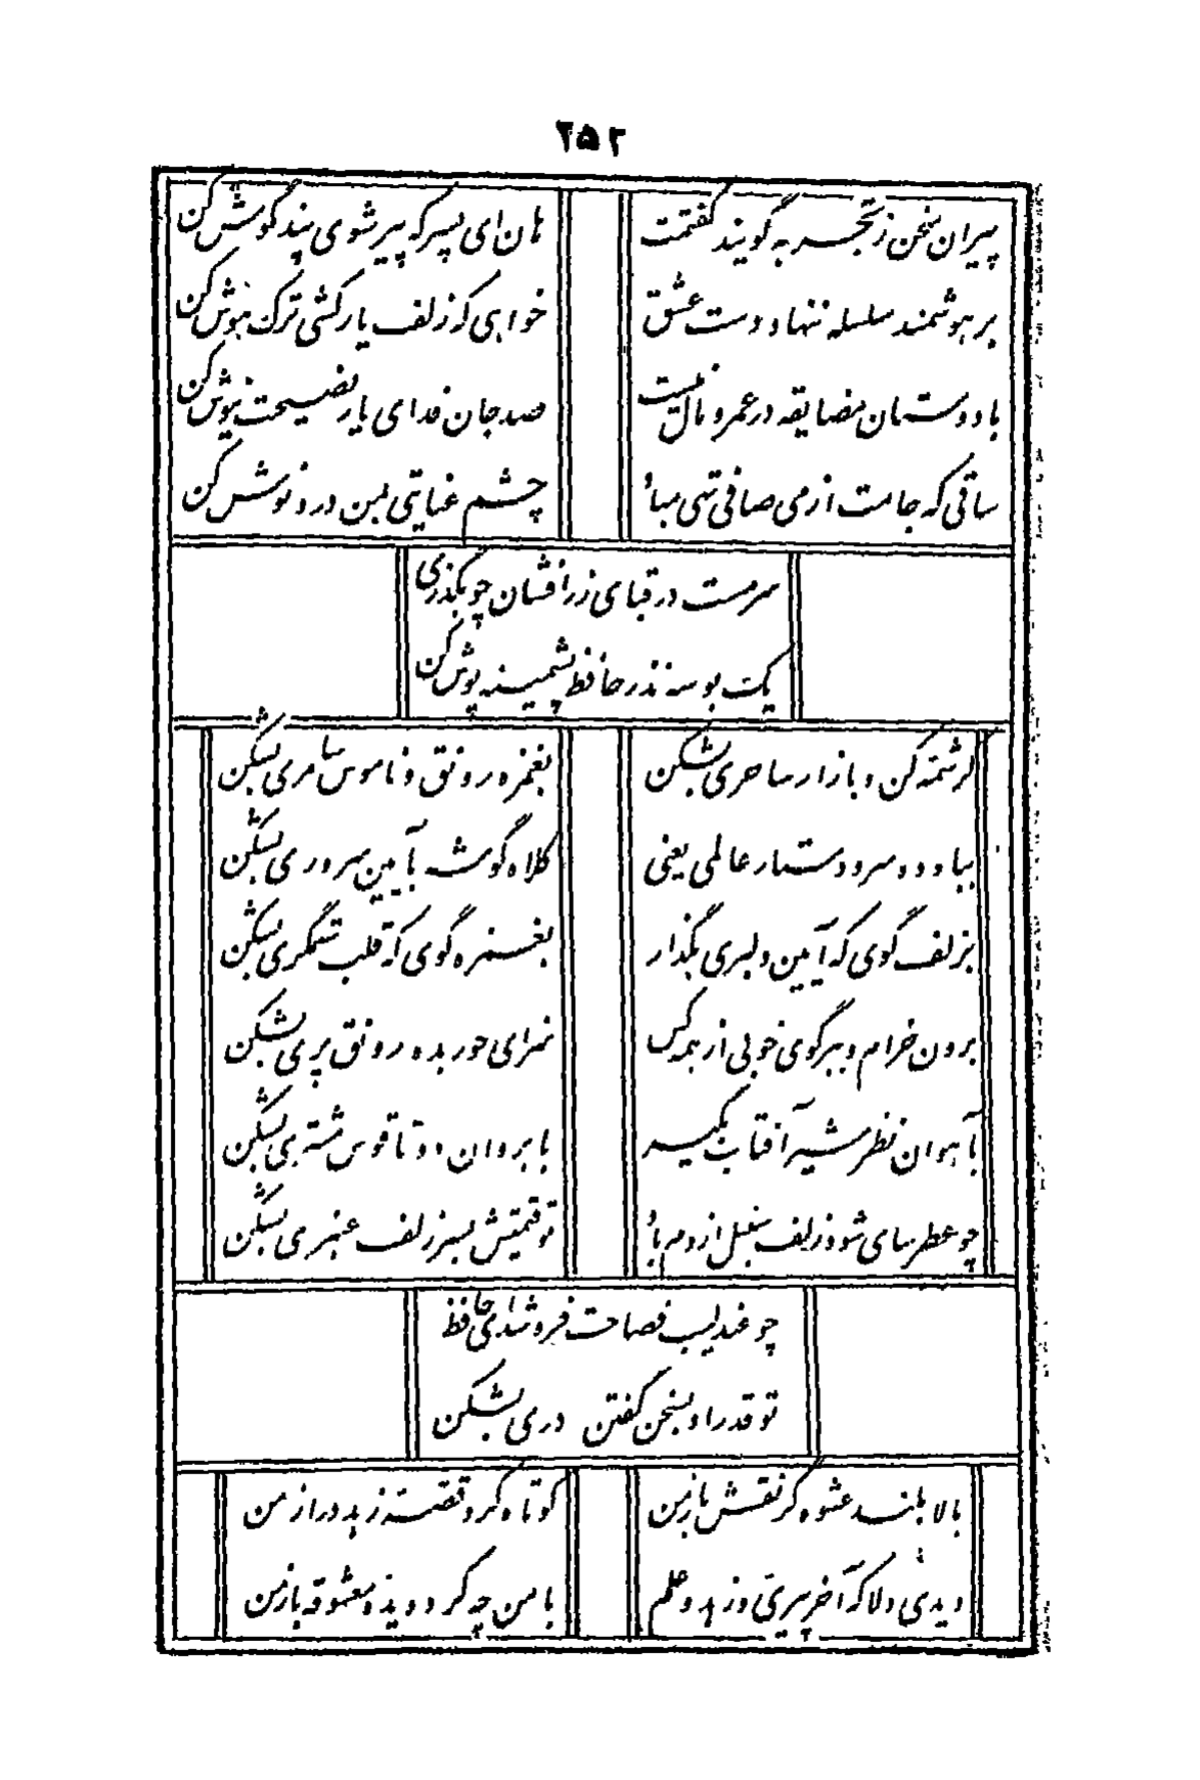 ۲۵۲
پیران سخن ز تجربه گویند گفتمت
هان ای پسر که پیر شوی پند گوش کن
بر هوشمند سلسله ننهاد دست عشق
خواهی که زلف یار کشی ترک هوش کن
با دوستان مضایقه در عمر و مال نیست
صد جان فدای یار نصیحت نیوش کن
ساقی که جامت از می صافی تهی مباد
چشم عنایتی بمن دردنوش کن
سرمست در قبای زرافشان چو بگذری
یک بوسه نذر حافظ پشمینه پوش کن
کرشمه کن و بازار ساحری بشکن
بغمزه رونق و ناموس سامری بشکن
بباد ده سر و دستار عالمی یعنی
کلاه گوشه بآیین سروری بشکن
بزلف گوی که آیین دلبری بگذار
بغمزه گوی که قلب ستمگری بشکن
برون خرام و ببر گوی خوبی از همه کس
سزای حور بده رونق پری بشکن
بآهوان نظر شیر آفتاب بگیر
بابروان دوتا قوس مشتری بشکن
چو عطرسای شود زلف سنبل از دم باد
تو قیمتش بسر زلف عنبری بشکن
چو عندلیب فصاحت فروشد ای حافظ
تو قدر او بسخن گفتن دری بشکن
بالا بلند عشوه گر نقش باز من
کوتاه کرد قصه زهد دراز من
دیدی دلا که آخر پیری و زهد و علم
با من چه کرد دیده معشوقه باز من